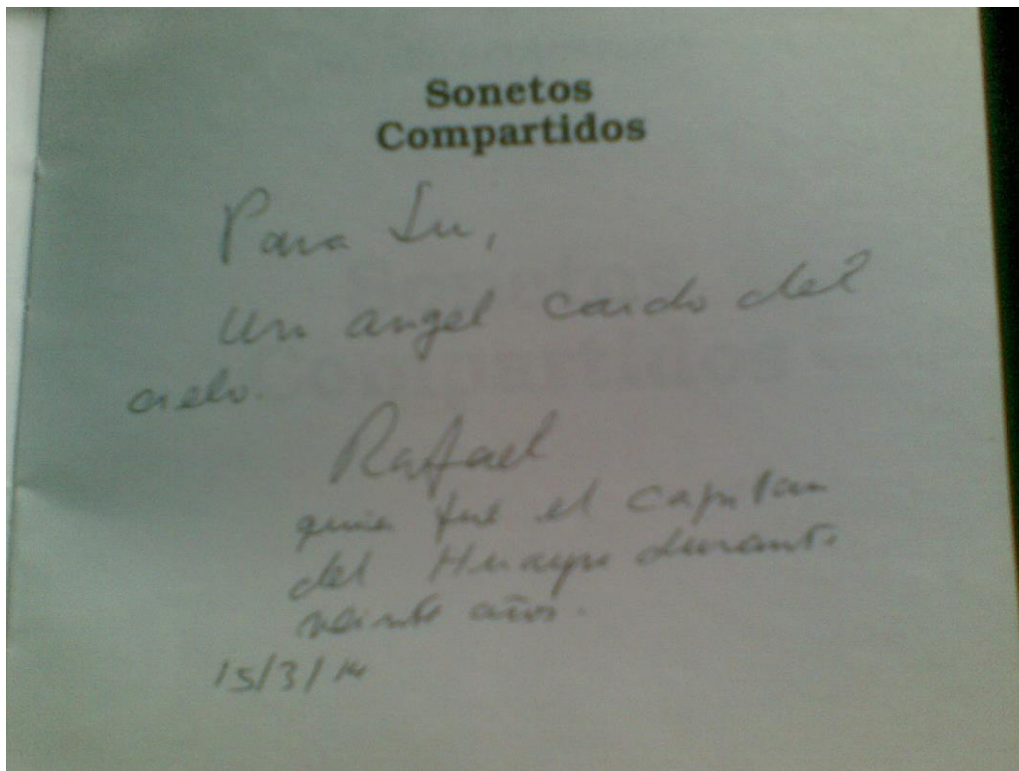 Sonetos
Compartidos
Para Lu,
Un angel caido del
cielo.
Rafael
quien fue el capitan
del Huayra durante
veinte años.
15/3/14